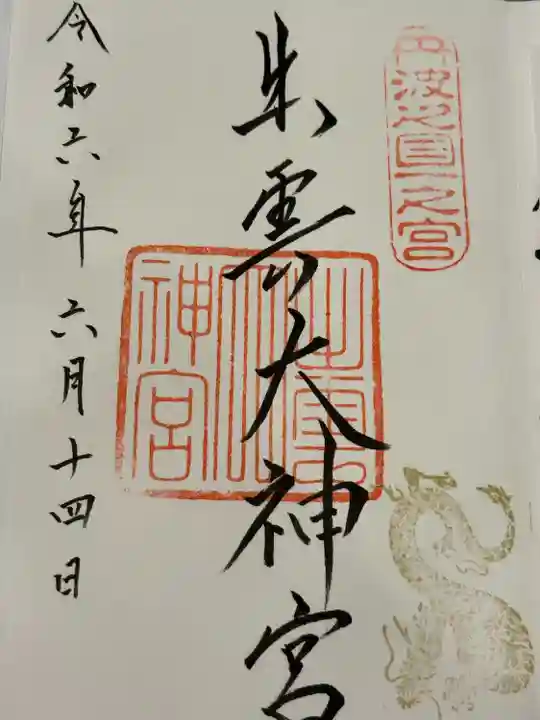 丹波之國一之宮
出雲大神宮
出雲
大
神宮
令和六年六月十四日